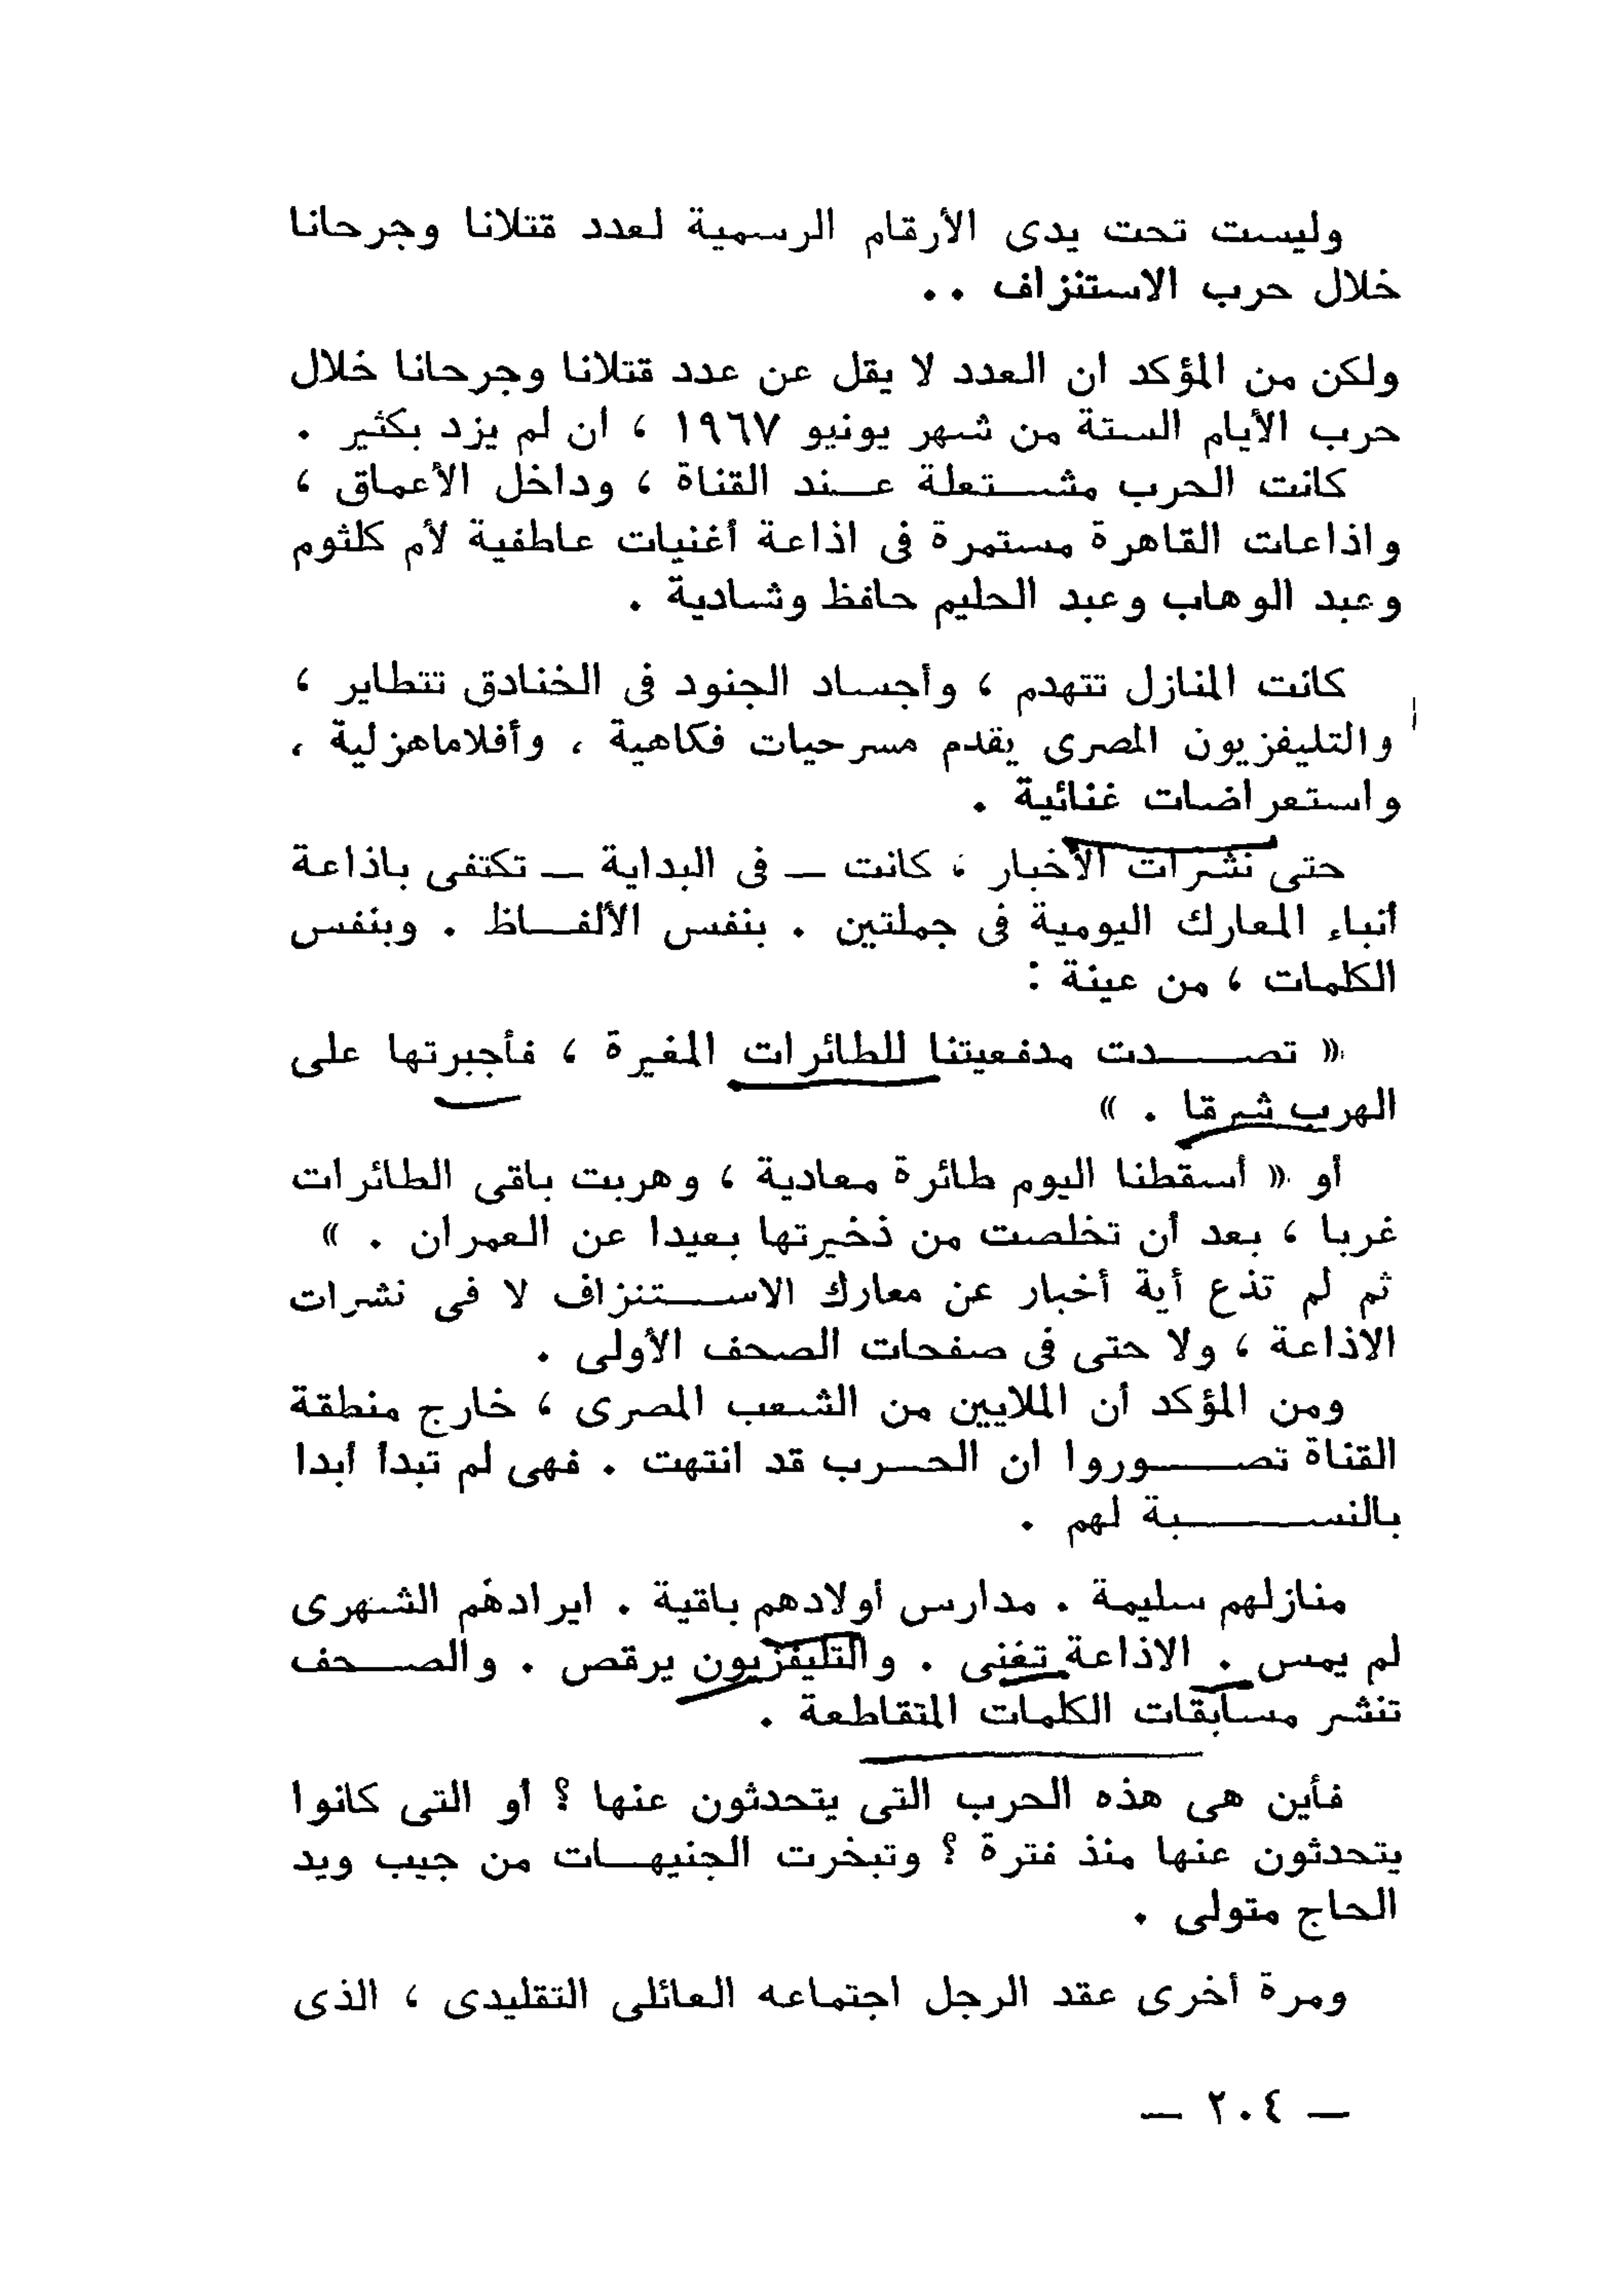 وليست تحت يدى الأرقام الرسمية لعدد قتلانا وجرحانا
خلال حرب الاستنزاف ٠٠
ولكن من المؤكد ان العدد لا يقل عن عدد قتلانا وجرحانا خلال
حرب الأيام الستة من شهر يونيو ١٩٦٧ ، ان لم يزد بكثير .
كانت الحرب مشتعلة عند القناة ، وداخل الأعماق ،
واذاعات القاهرة مستمرة فى اذاعة أغنيات عاطفية لأم كلثوم
وعبد الوهاب وعبد الحليم حافظ وشادية .
كانت المنازل تتهدم ، وأجساد الجنود فى الخنادق تتطاير ،
والتليفزيون المصرى يقدم مسرحيات فكاهية ، وأفلاماهزلية ،
واستعراضات غنائية .
حتى نشرات الأخبار ، كانت — فى البداية — تكتفى باذاعة
أنباء المعارك اليومية فى جملتين . بنفس الألفاظ . وبنفس
الكلمات ، من عينة :
« تصدت مدفعيتنا للطائرات المغيرة ، فأجبرتها على
الهرب شرقا . »
أو « أسقطنا اليوم طائرة معادية ، وهربت باقى الطائرات
غربا ، بعد أن تخلصت من ذخيرتها بعيدا عن العمران . »
ثم لم تذع أية أخبار عن معارك الاستنزاف لا فى نشرات
الاذاعة ، ولا حتى فى صفحات الصحف الأولى .
ومن المؤكد أن الملايين من الشعب المصرى ، خارج منطقة
القناة تصوروا ان الحرب قد انتهت . فهى لم تبدأ أبدا
بالنسبة لهم .
منازلهم سليمة . مدارس أولادهم باقية . ايرادهم الشهرى
لم يمس . الاذاعة تغنى . والتليفزيون يرقص . والصحف
تنشر مسابقات الكلمات المتقاطعة .
فأين هى هذه الحرب التى يتحدثون عنها ؟ أو التى كانوا
يتحدثون عنها منذ فترة ؟ وتبخرت الجنيهات من جيب ويد
الحاج متولى .
ومرة أخرى عقد الرجل اجتماعه العائلى التقليدى ، الذى
— ٢٠٤ —